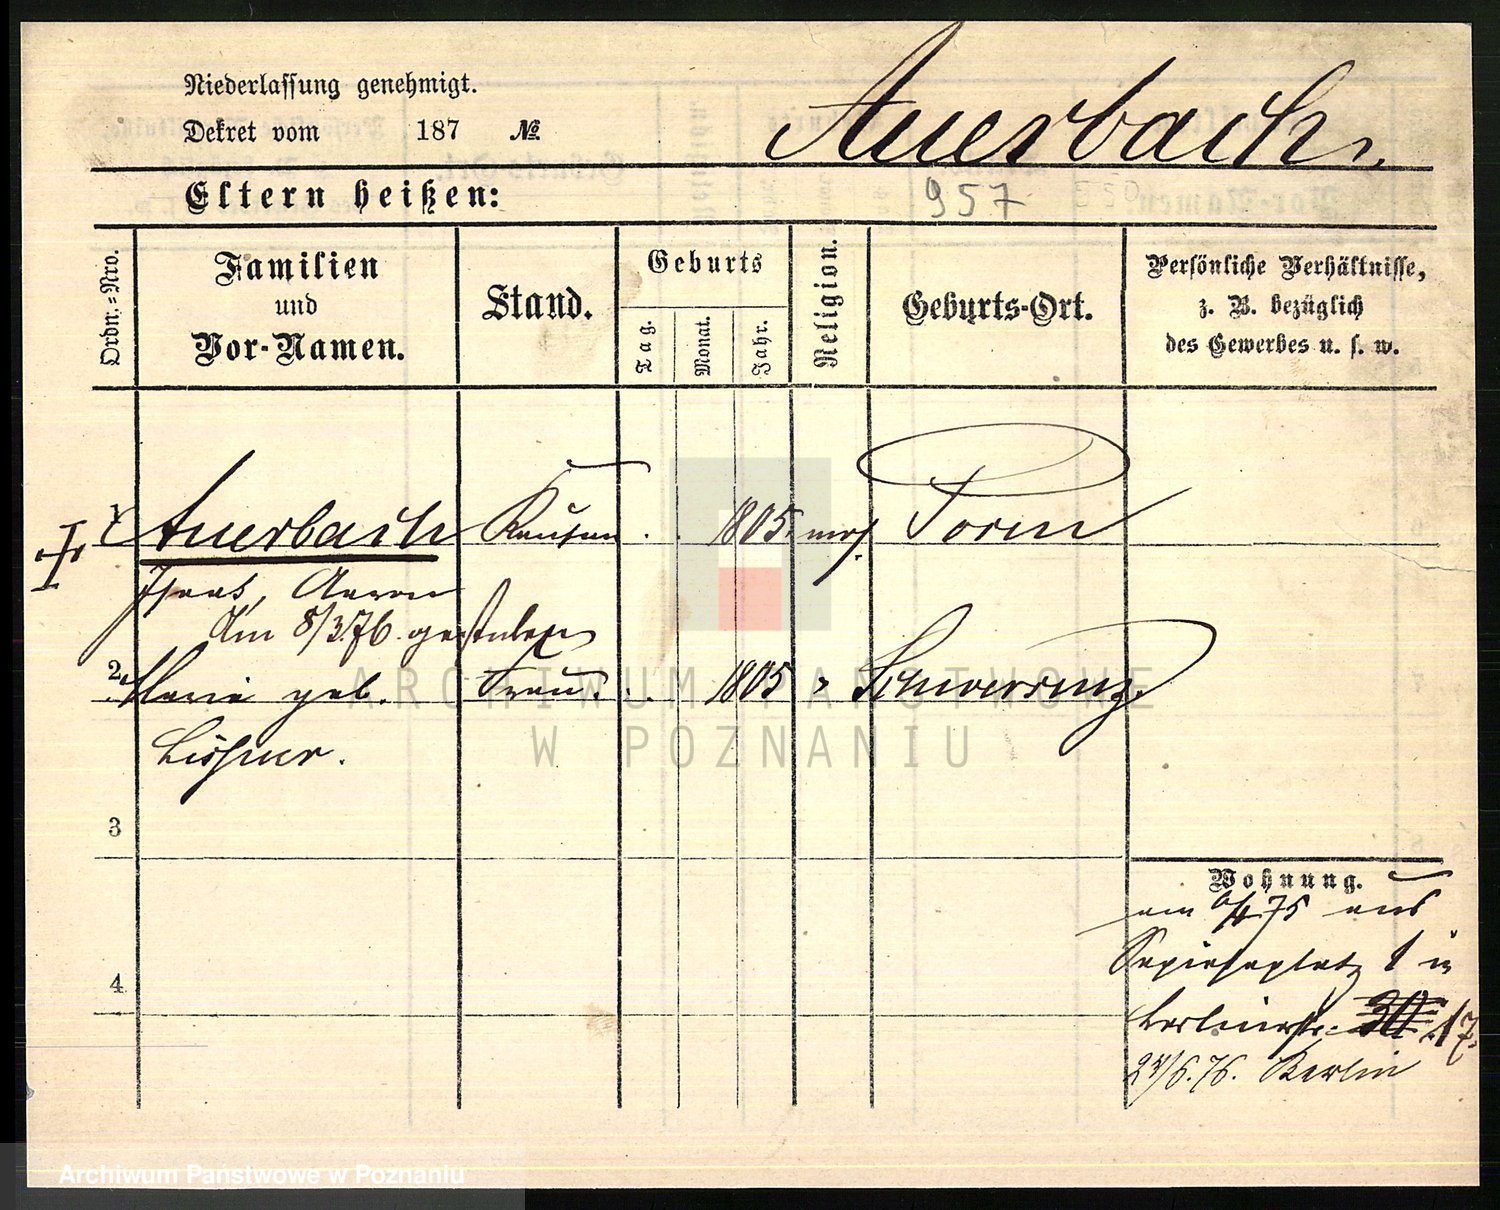 Niederlassung genehmigt.
Dekret vom 187 №
Auerbach.
Eltern heißen:
957
Ordn.=Nro.
Familien
und
Vor-Namen.
Stand.
Geburts
Tag.
Monat.
Jahr.
Religion.
Geburts-Ort.
Persönliche Verhältnisse,
z. B. bezüglich
des Gewerbes u. s. w.
1 Auerbach Kaufm 1805. mos. Posen
Isaak, Aaron
Am 8/3.76. gestorben
2 Marie geb. Frau. 1805 " Schwersenz.
Lissner.
3
4
Wohnung.
am 75 aus
Sapiehaplatz 1 in
Berlinerstr. 30 17
6.76. Berlin
ARCHIWUM PAŃSTWOWE
W POZNANIU
Archiwum Państwowe w Poznaniu